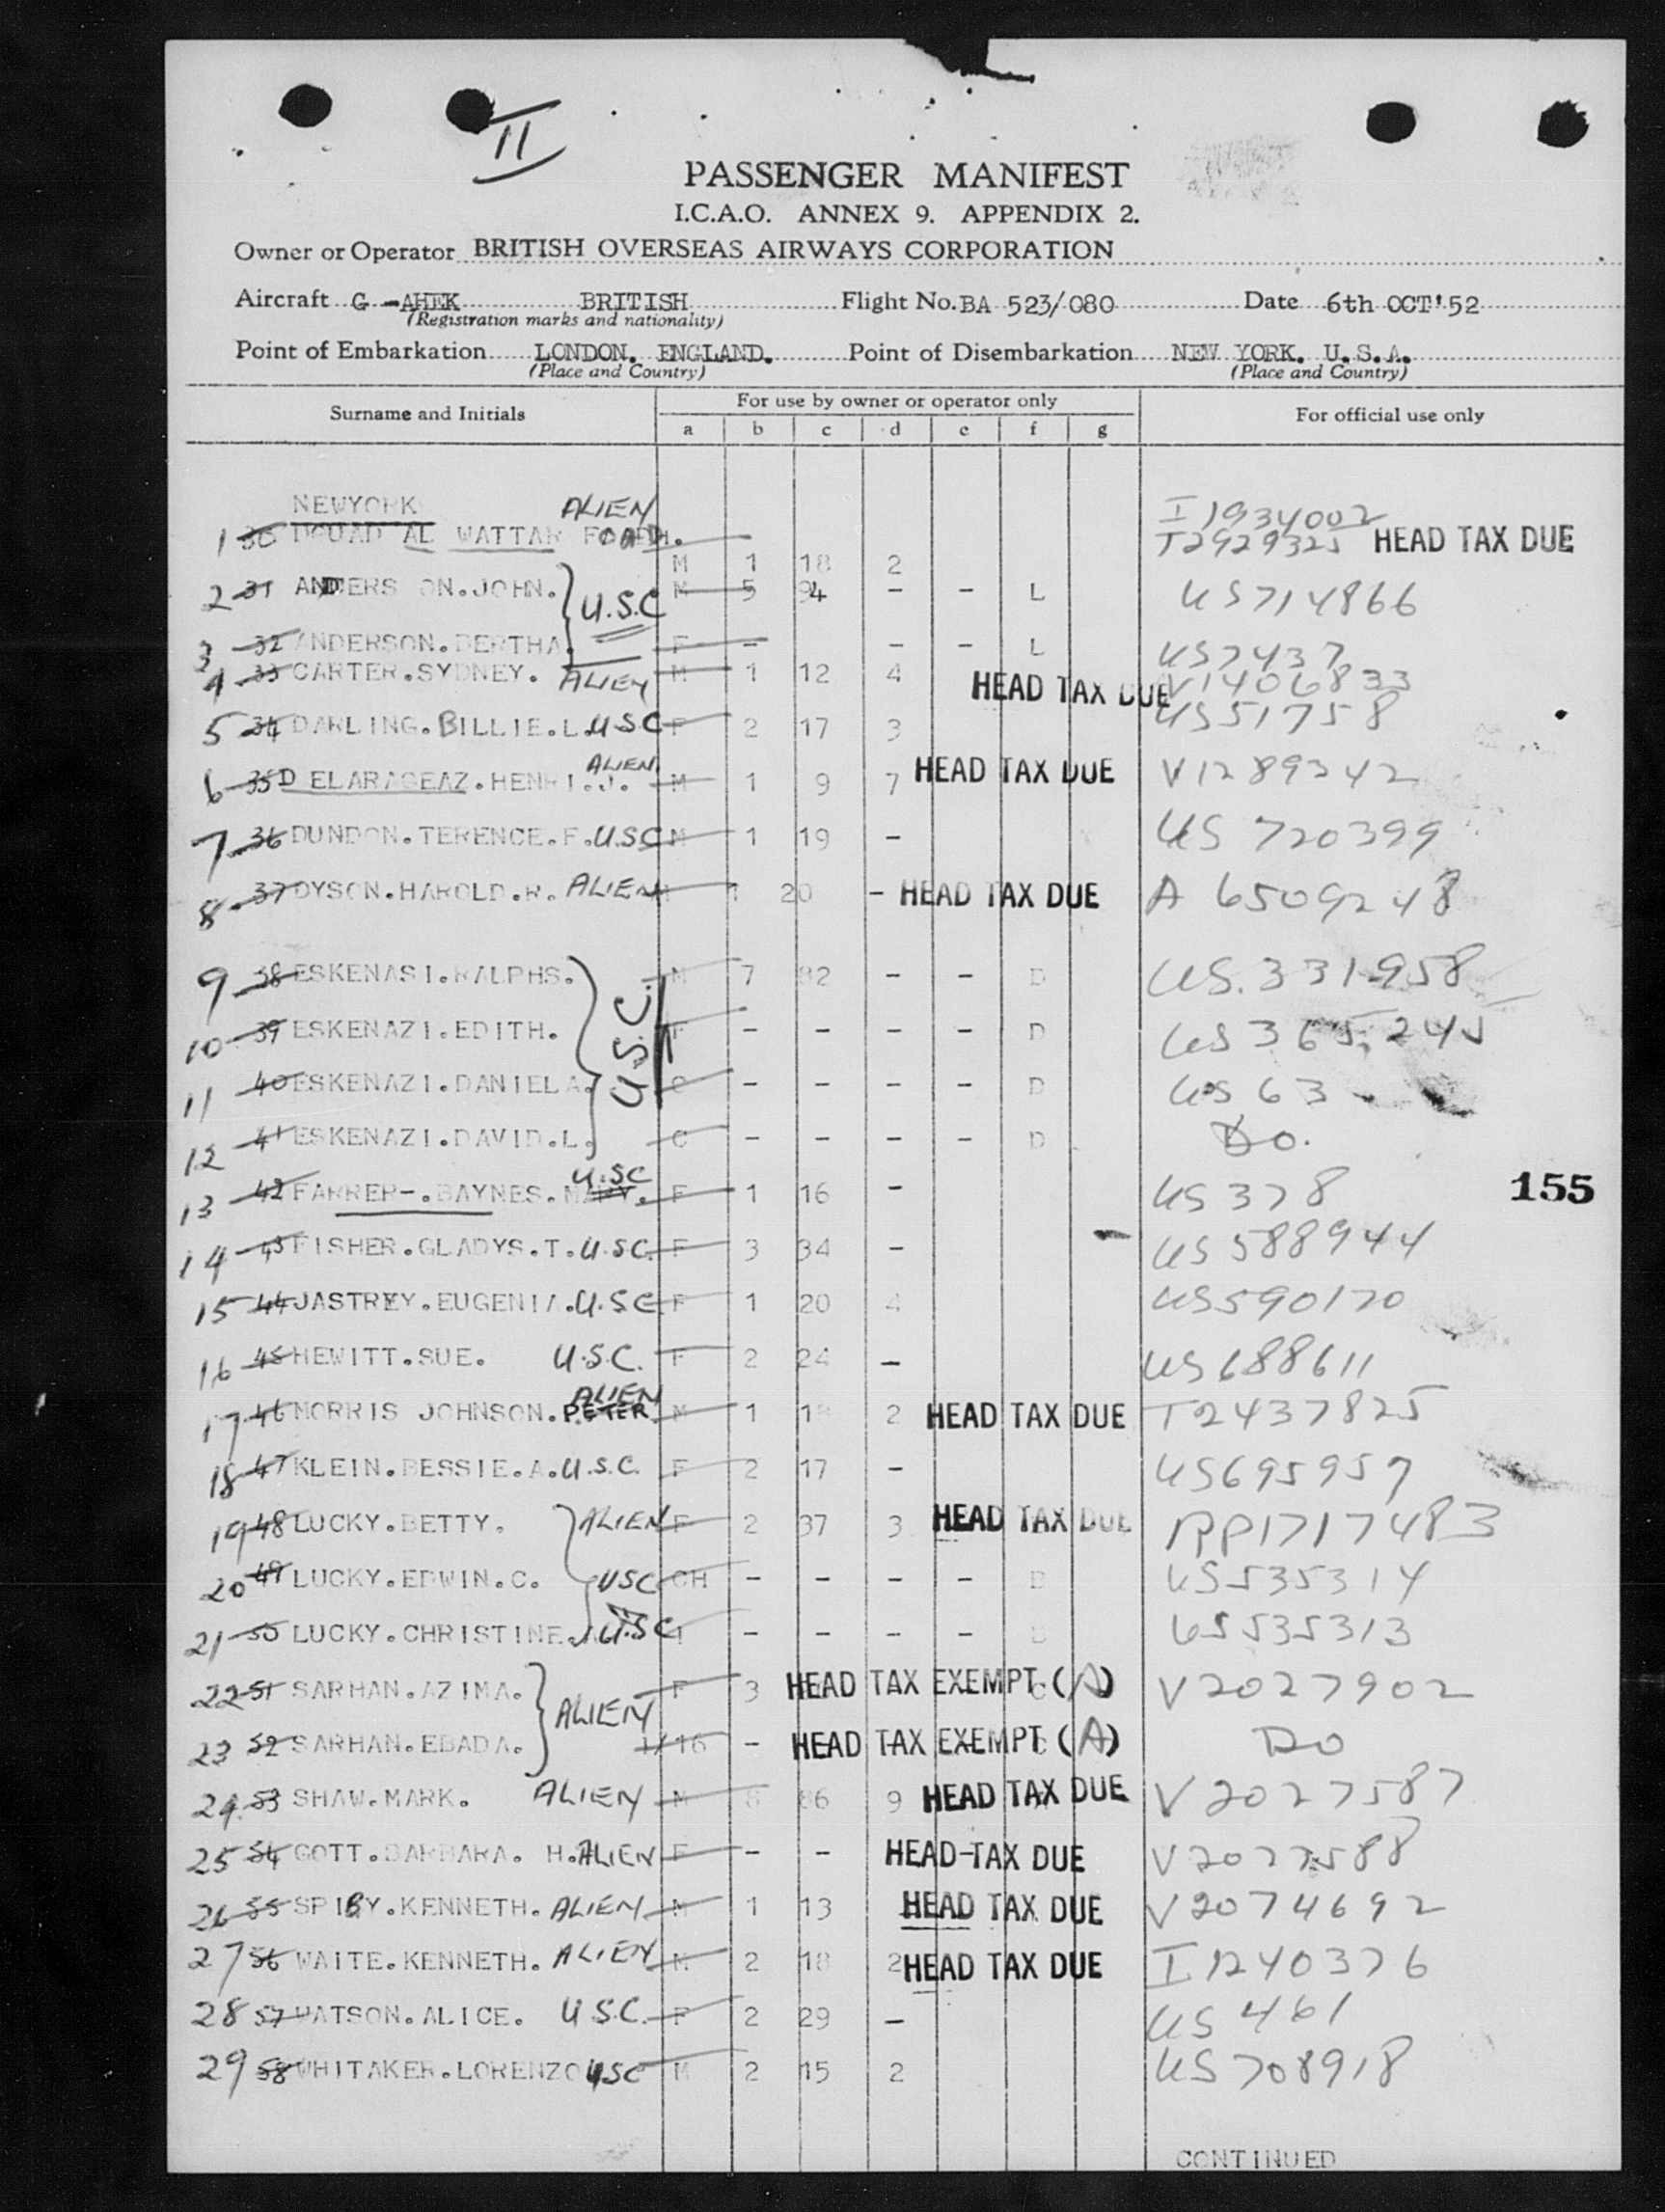 II
PASSENGER MANIFEST
I.C.A.O. ANNEX 9. APPENDIX 2.
Owner or Operator BRITISH OVERSEAS AIRWAYS CORPORATION
Aircraft G -AHEK BRITISH Flight No. BA 523/080 Date 6th OCT'52
(Registration marks and nationality)
Point of Embarkation LONDON. ENGLAND. Point of Disembarkation NEW YORK. U.S.A.
(Place and Country) (Place and Country)
Surname and Initials For use by owner or operator only For official use only
a b c d e f g
NEWYORK ALIEN I1934002
1 30 AL WATTAR T2929325 HEAD TAX DUE
M 1 18 2
2 31 ANDERS ON.JOHN. U.S.C M 5 94 - - L US714866
3 32 ANDERSON.BERTHA. F - - - L US7437
4 33 CARTER.SYDNEY. ALIEN M 1 12 4 HEAD TAX DUE V1406833
5 34 DARLING.BILLIE.L USC F 2 17 3 US51758
ALIEN
6 35 D ELARAGEAZ.HENRI.J. M 1 9 7 HEAD TAX DUE V1289242
7 36 DUNDON.TERENCE.F. U.S.C M 1 19 - US 720399
8 37 DYSON.HAROLD.R. ALIEN 1 20 - HEAD TAX DUE A 6509248
9 38 ESKENASI.RALPHS. U.S.C. M 7 82 - - D US.331958
10 39 ESKENAZI.EDITH. F - - - - D US 365245
11 40 ESKENAZI.DANIELA. C - - - - D US 63
12 41 ESKENAZI.DAVID.L. C - - - - D Do.
U.SC
13 42 FARRER-.BAYNES.MARY. F 1 16 - US 378 155
14 43 FISHER.GLADYS.T. U.S.C. F 3 34 - US 588944
15 44 JASTRZY.EUGENIA. U.S.C F 1 20 4 US590170
16 45 HEWITT.SUE. U.S.C. F 2 24 - US 688611
ALIEN
17 46 MORRIS JOHNSON.PETER M 1 18 2 HEAD TAX DUE T2437825
18 47 KLEIN.BESSIE.A. U.S.C. F 2 17 - US695957
19 48 LUCKY.BETTY. ALIEN F 2 37 3 HEAD TAX DUE RP1717483
20 49 LUCKY.EDWIN.C. USC CH - - - - D US535314
21 50 LUCKY.CHRISTINE. U.S.C - - - - D US535313
22 51 SARHAN.AZIMA. ALIEN F 3 HEAD TAX EXEMPT (A) V2027902
23 52 SARHAN.EBADA. 16 - HEAD TAX EXEMPT (A) Do
24 53 SHAW.MARK. ALIEN M 8 86 9 HEAD TAX DUE V2027587
25 54 GOTT.BARBARA. H. ALIEN F - - HEAD TAX DUE V2027588
26 55 SPIBY.KENNETH. ALIEN M 1 13 HEAD TAX DUE V2074692
27 56 WAITE.KENNETH. ALIEN M 2 18 2 HEAD TAX DUE I1240376
28 57 WATSON.ALICE. U.S.C. F 2 29 - US 461
29 58 WHITAKER.LORENZO USC M 2 15 2 US 708918
CONTINUED